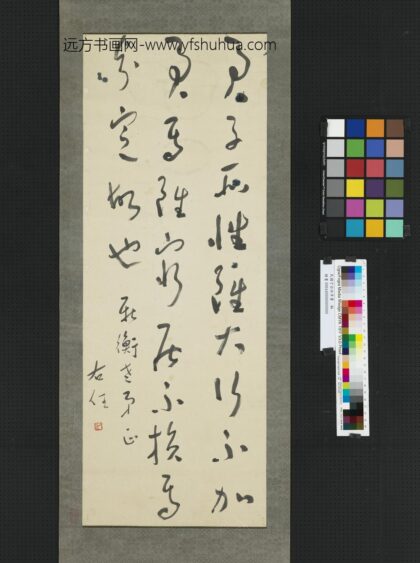 远方书画网-www.yfshuhua.com
君子所性雖大行不加
焉雖窮居不損焉
定故也
衡老弟正
右任